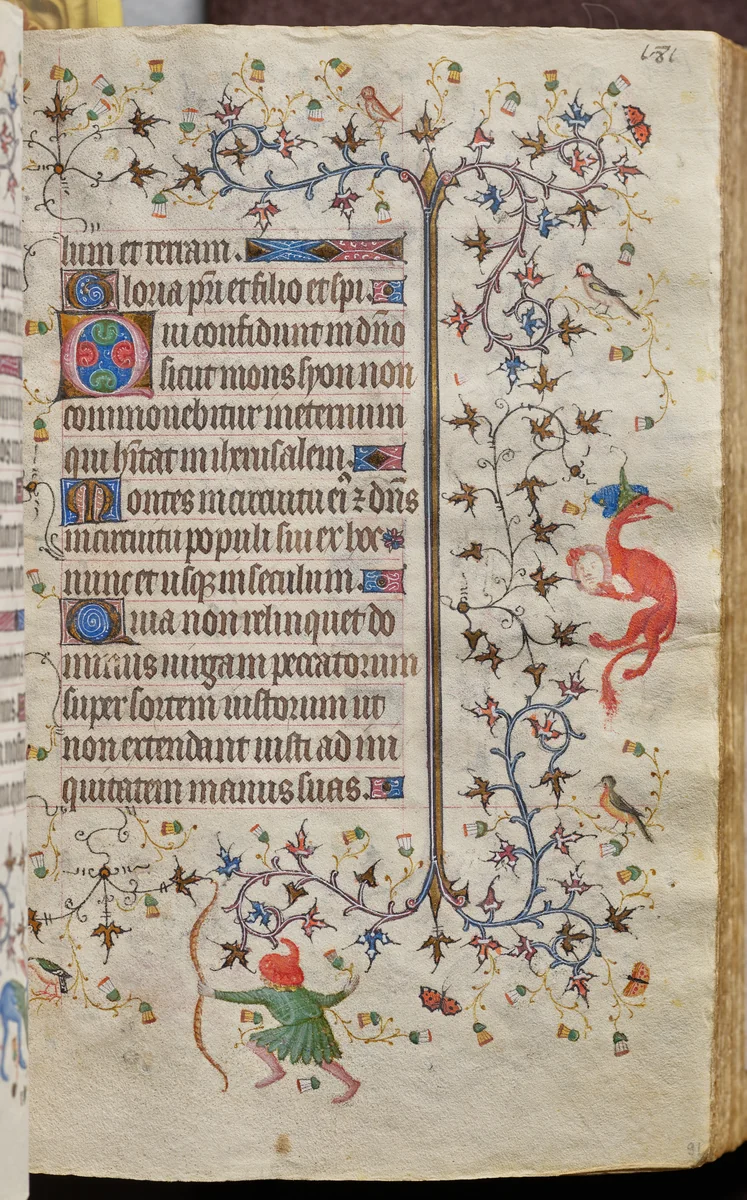 lum et terram.
Gloria pri et filio et spi.
Qui confidunt in dno
sicut mons syon non
commouebitur in eternum
qui hitat in iherusalem.
Montes in circuitu ei⁹ ⁊ dns
in circuitu populi sui ex hoc
nunc et usqꝫ in seculum.
Quia non relinquet do
minus uirgam peccatorum
super sortem iustorum ut
non extendant iusti ad ini
quitatem manus suas.
91